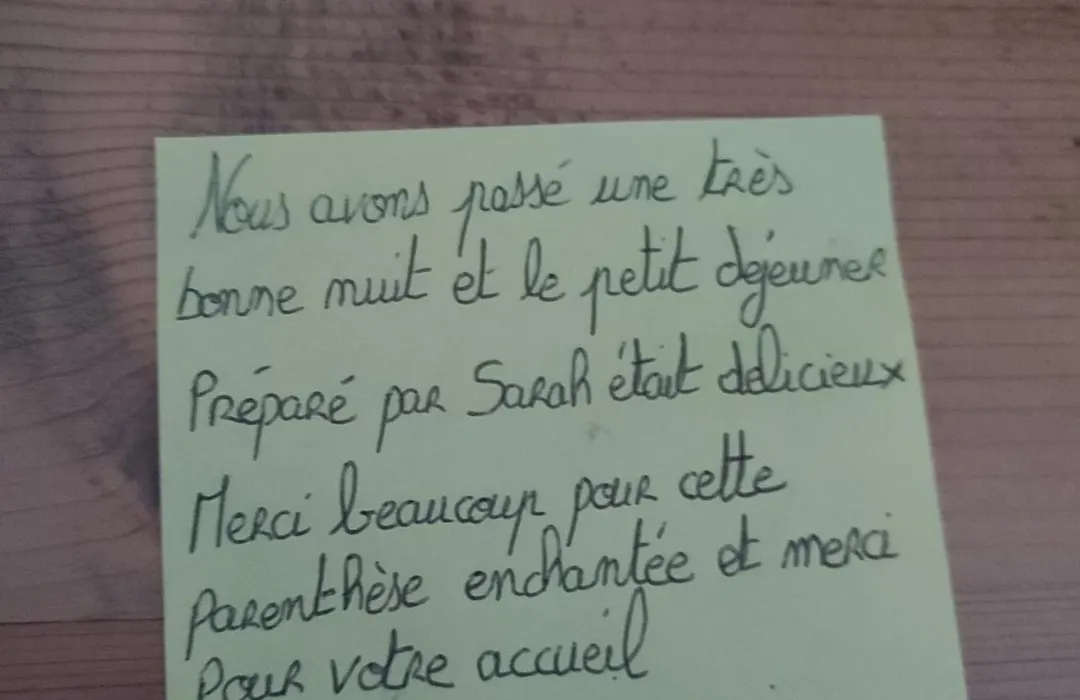 Nous avons passé une très
bonne nuit et le petit déjeuner
Préparé par Sarah était délicieux
Merci beaucoup pour cette
Parenthèse enchantée et merci
Pour votre accueil